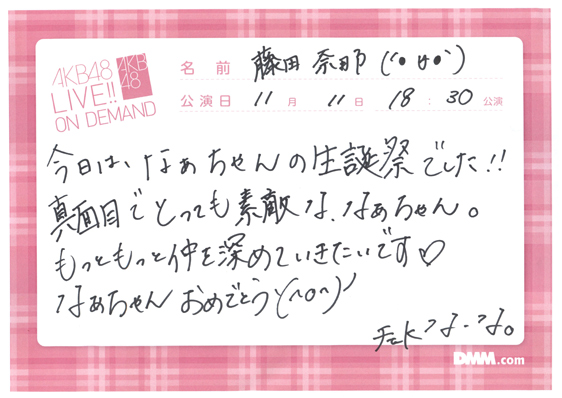 AKB48
LIVE!!
ON DEMAND
AKB
48
名前 藤田 奈那 (´●ω●`)
公演日 11月 11日 18:30 公演
今日は、なぁちゃんの生誕祭でした!!
真面目でとっても素敵な、なぁちゃん。
もっともっと仲を深めていきたいです♡
なぁちゃん おめでとう\(^o^)/
な-な。
DMM.com